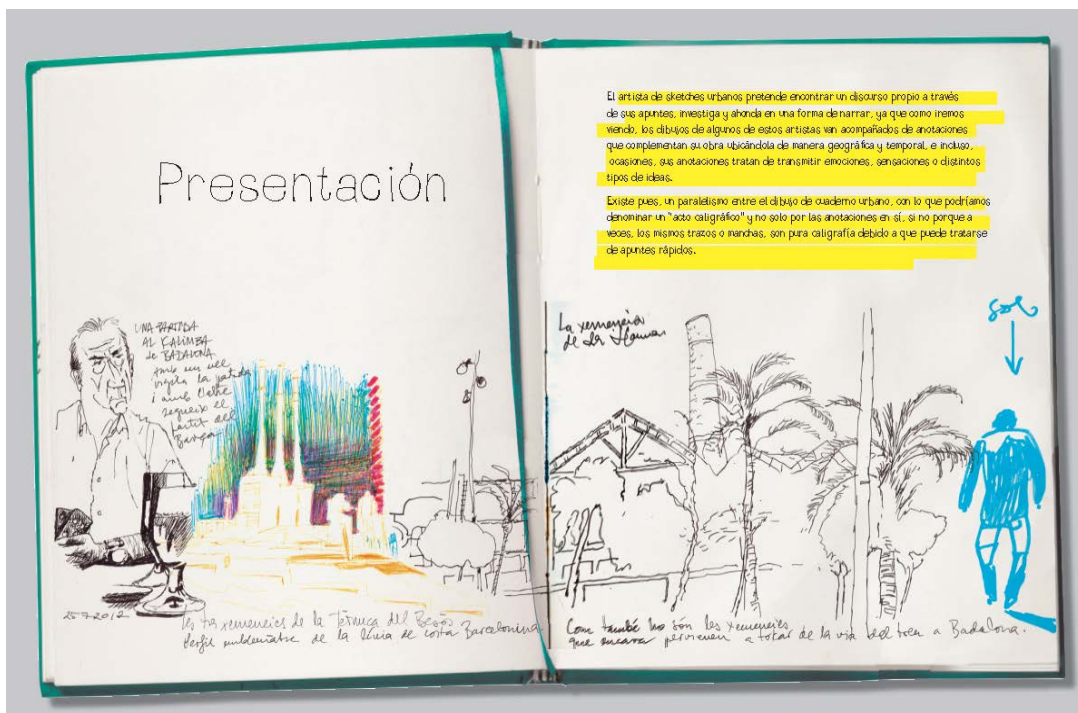 Presentación
UNA PARTIDA
AL KALIMBA
de BADALONA
amb un ull
vigila la partida
i amb l'altre
segueix el
partit del
Barça
25-7-2012
Les tres xemeneies de la Tèrmica del Besòs
Perfil emblemàtic de la línia de costa Barcelonina.
El artista de sketches urbanos pretende encontrar un discurso propio a través
de sus apuntes, investiga y ahonda en una forma de narrar, ya que como iremos
viendo, los dibujos de algunos de estos artistas van acompañados de anotaciones
que complementan su obra ubicándola de manera geográfica y temporal, e incluso,
ocasiones, sus anotaciones tratan de transmitir emociones, sensaciones o distintos
tipos de ideas.
Existe pues, un paralelismo entre el dibujo de cuaderno urbano, con lo que podríamos
denominar un "acto caligráfico" y no solo por las anotaciones en sí, si no porque a
veces, los mismos trazos o manchas, son pura caligrafía debido a que puede tratarse
de apuntes rápidos.
La xemeneia
de la
sol
Com també ho són les xemeneies
que encara pervienen a tocar de la via del tren a Badalona.